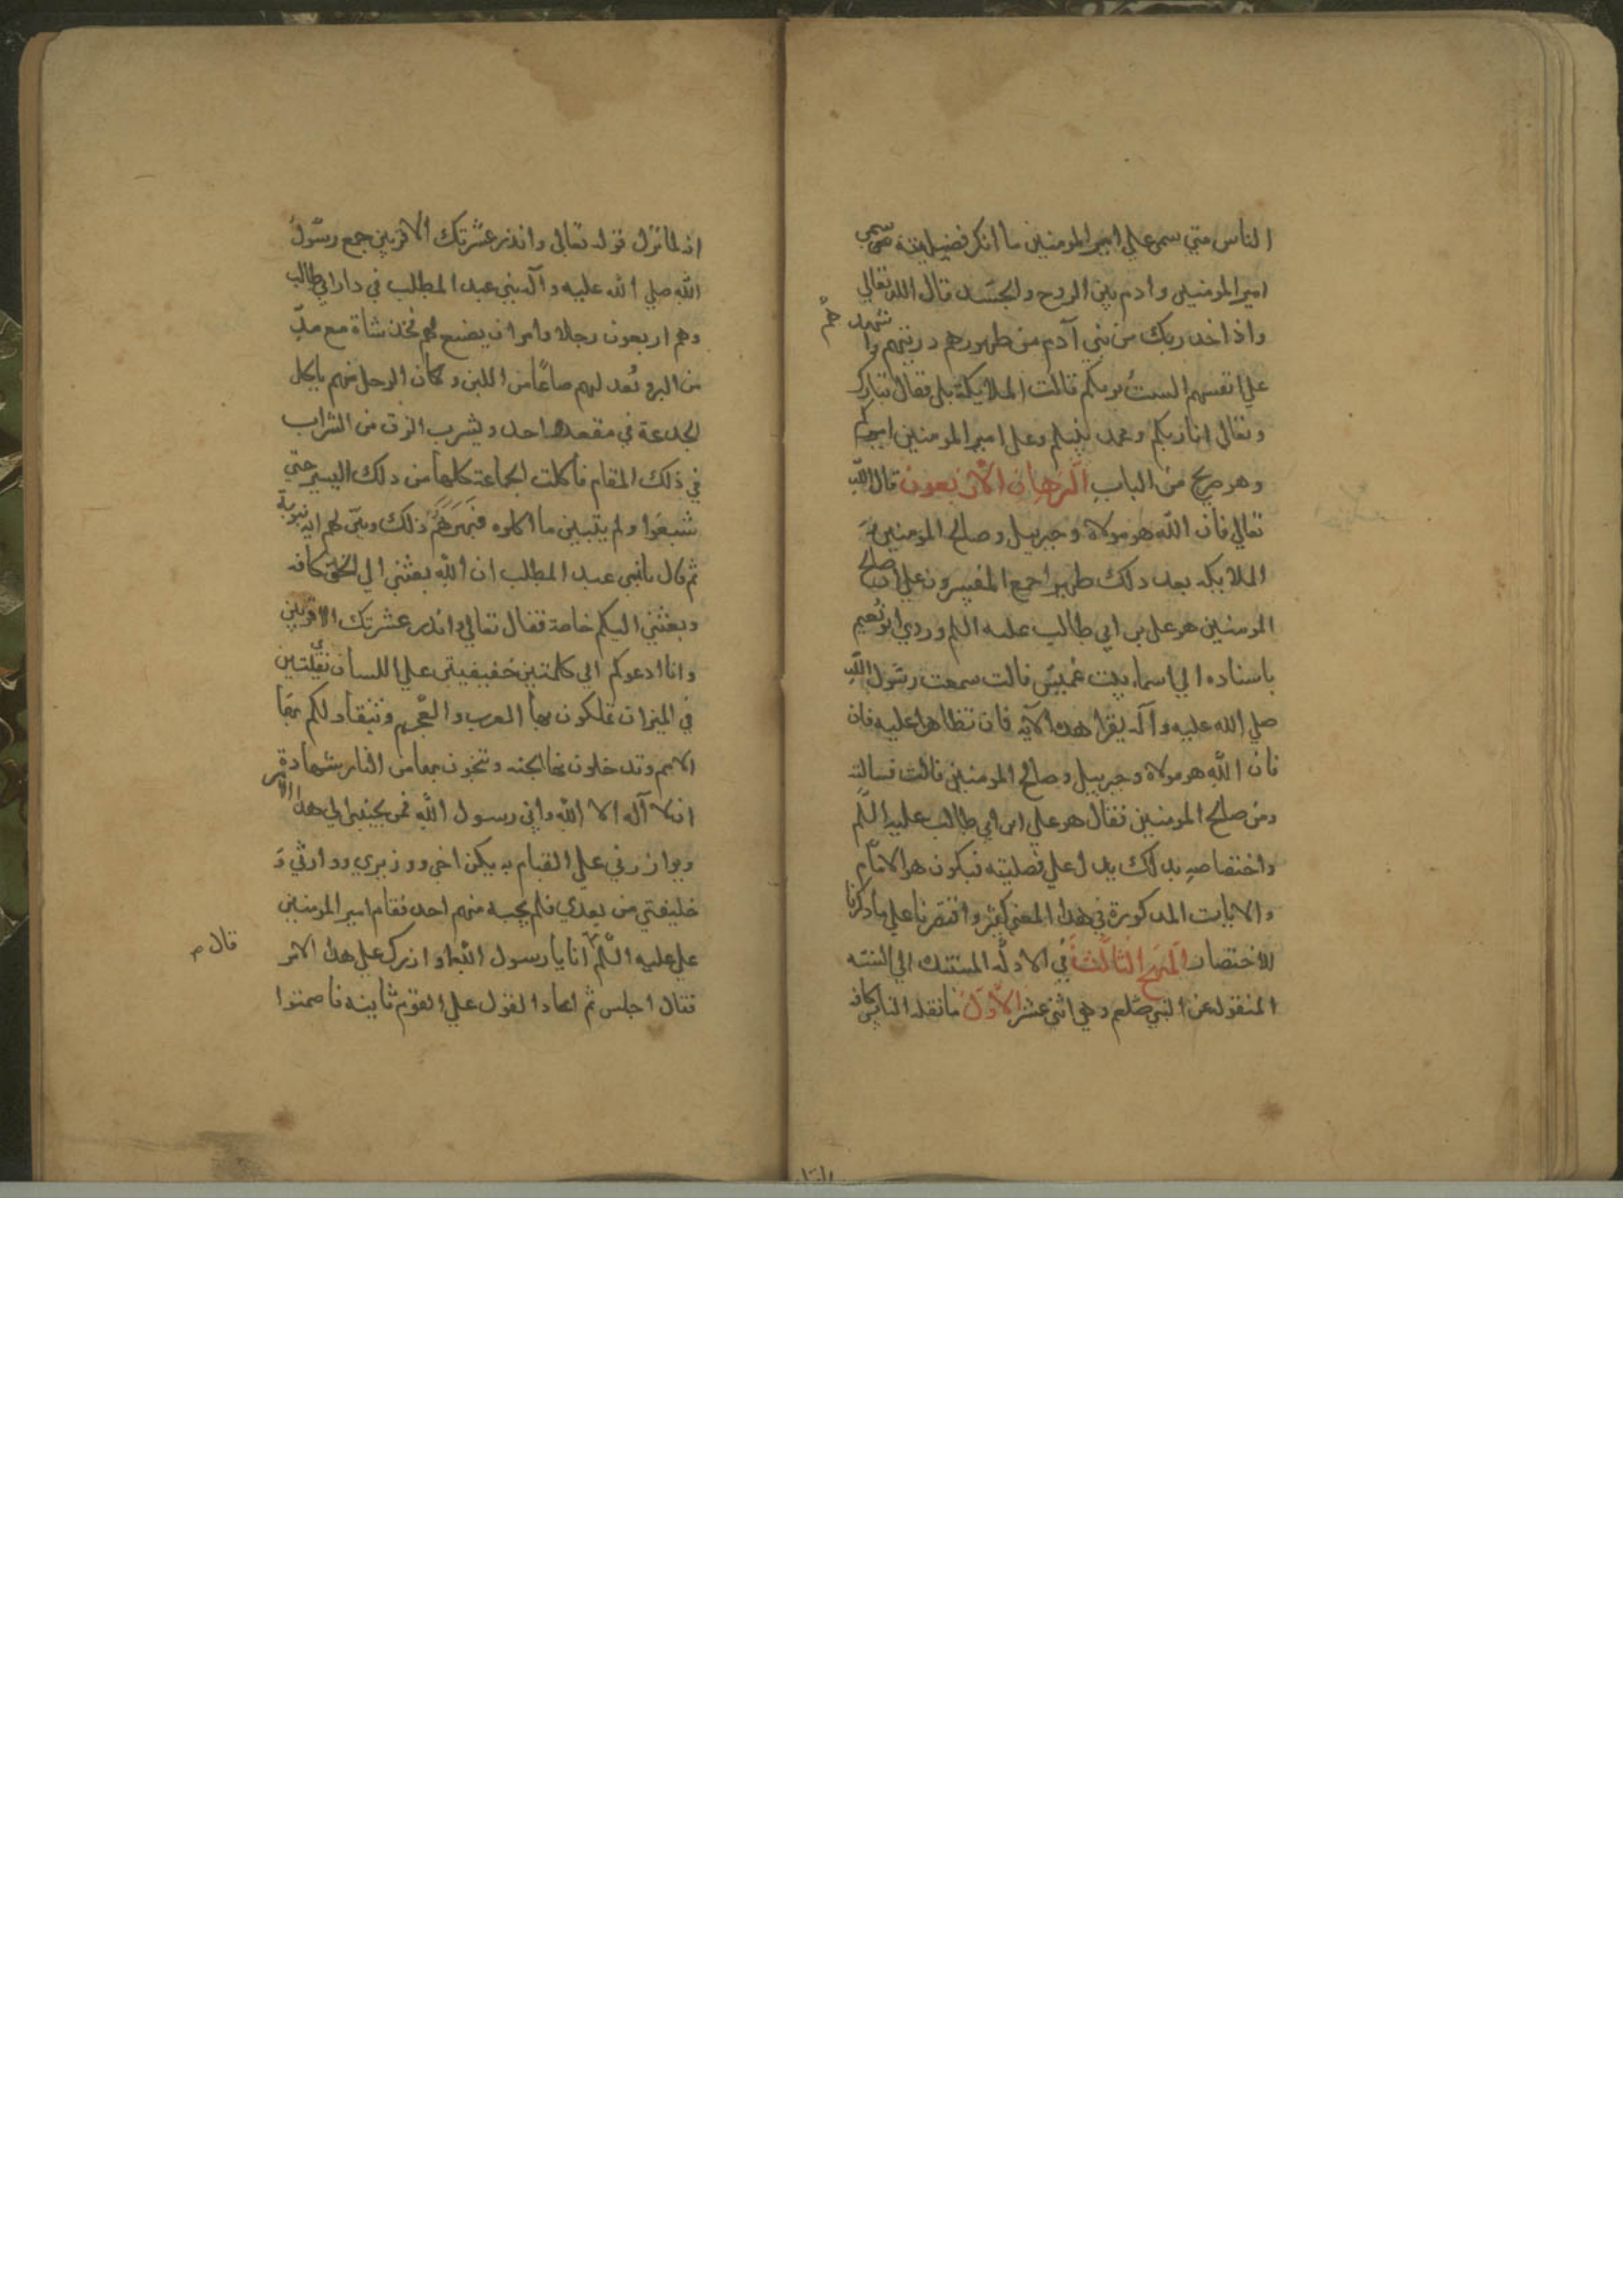 الناس متي سمي علي امير المومنين ما انكر فضيلته سمي
امير المومنين وادم بين الروح والجسد قال الله تعالي
واذ اخد ربك من بني آدم من ظهورهم دريتهم واشهدهم
علي انفسهم الست بربكم قالت الملايكة بلي فقال تبارك
وتعالي انا ربكم ومحمد نبيكم وعلي امير المومنين اميركم
وهو صريح من الباب البرهان الاربعون قال الله
تعالي فان الله هو مولاه وجبرييل وصالح المومنين و
الملايكه بعد دلك ظهير اجمع المفسرون علي ان صالح
المومنين هو علي بن ابي طالب عليه السلم وروي ابو نعيم
باسناده الي اسماء بنت عميس قالت سمعت رسول الله
صلي الله عليه وآله يقرا هده الآيه فان تظاهرا عليه فان
فان الله هو مولاه وجبرييل وصالح المومنين قالت فسالته
ومن صالح المومنين فقال هو علي ابن ابي طالب عليه السلم
واختصاصه بدلك يدل علي فضليته فيكون هو الامام
والايات المدكورة في هدا المعني كثيرة واقتصرنا علي ما دكرنا
للاختصار المنهج الثالث في الادلة المستندة الي السنه
المنقوله عن النبي صلعم وهي اثني عشر الاول ما نقله الناس كافه
اذ لما نزل قوله تعالي وانذر عشيرتك الاقربين جمع رسول
الله صلي الله عليه وآله بني عبد المطلب في دار ابي طالب
وهم اربعون رجلا وامر ان يصنع لهم فخذ شاة مع مد
من البر ويعد لهم صاعا من اللبن وكان الرجل منهم ياكل
الجدعة في مقعد واحد ويشرب الزق من الشراب
في ذلك المقام فاكلت الجماعة كلها من دلك اليسير حتي
شبعوا ولم يتبين ما اكلوه فبهرهم ذلك وبين لهم ايه نبوية
ثم قال يا بني عبد المطلب ان الله بعثني الي الخلق كافه
وبعثني اليكم خاصة فقال تعالي وانذر عشيرتك الاقربين
وانا ادعوكم الي كلمتين خفيفتين علي اللسان ثقيلتين
في الميزان تملكون بها العرب والعجم وتنقاد لكم بها
الامم وتدخلون بها الجنه وتنجون بها من النار شهادة
ان لا آله الا الله واني رسول الله فمن يجيبني الي هدا الامر
ويوازرني علي القيام به يكن اخي ووزيري ووارثي و
خليفتي من بعدي فلم يجبه منهم احد فقام امير المومنين
علي عليه السلم انا يا رسول الله اوازرك علي هدا الامر
قال م
فقال اجلس ثم اعاد القول علي القوم ثانيه فاصمتوا